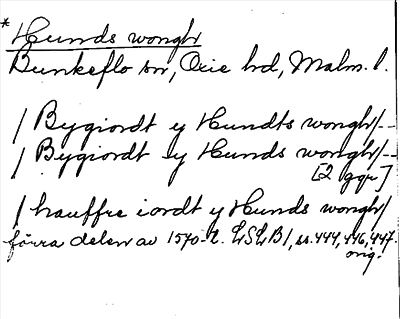 * Hunds wongh
Bunkeflo sn, Oxie hd, Malm. l.
/ Bygiordt y Hundts wongh/--
/ Bygiordt y Hunds wongh/--
[2 ggr]
/ hauffre iordt y Hunds wongh/
förra delen av 1570-t. LSLB1, ss. 444, 446, 447.
orig.